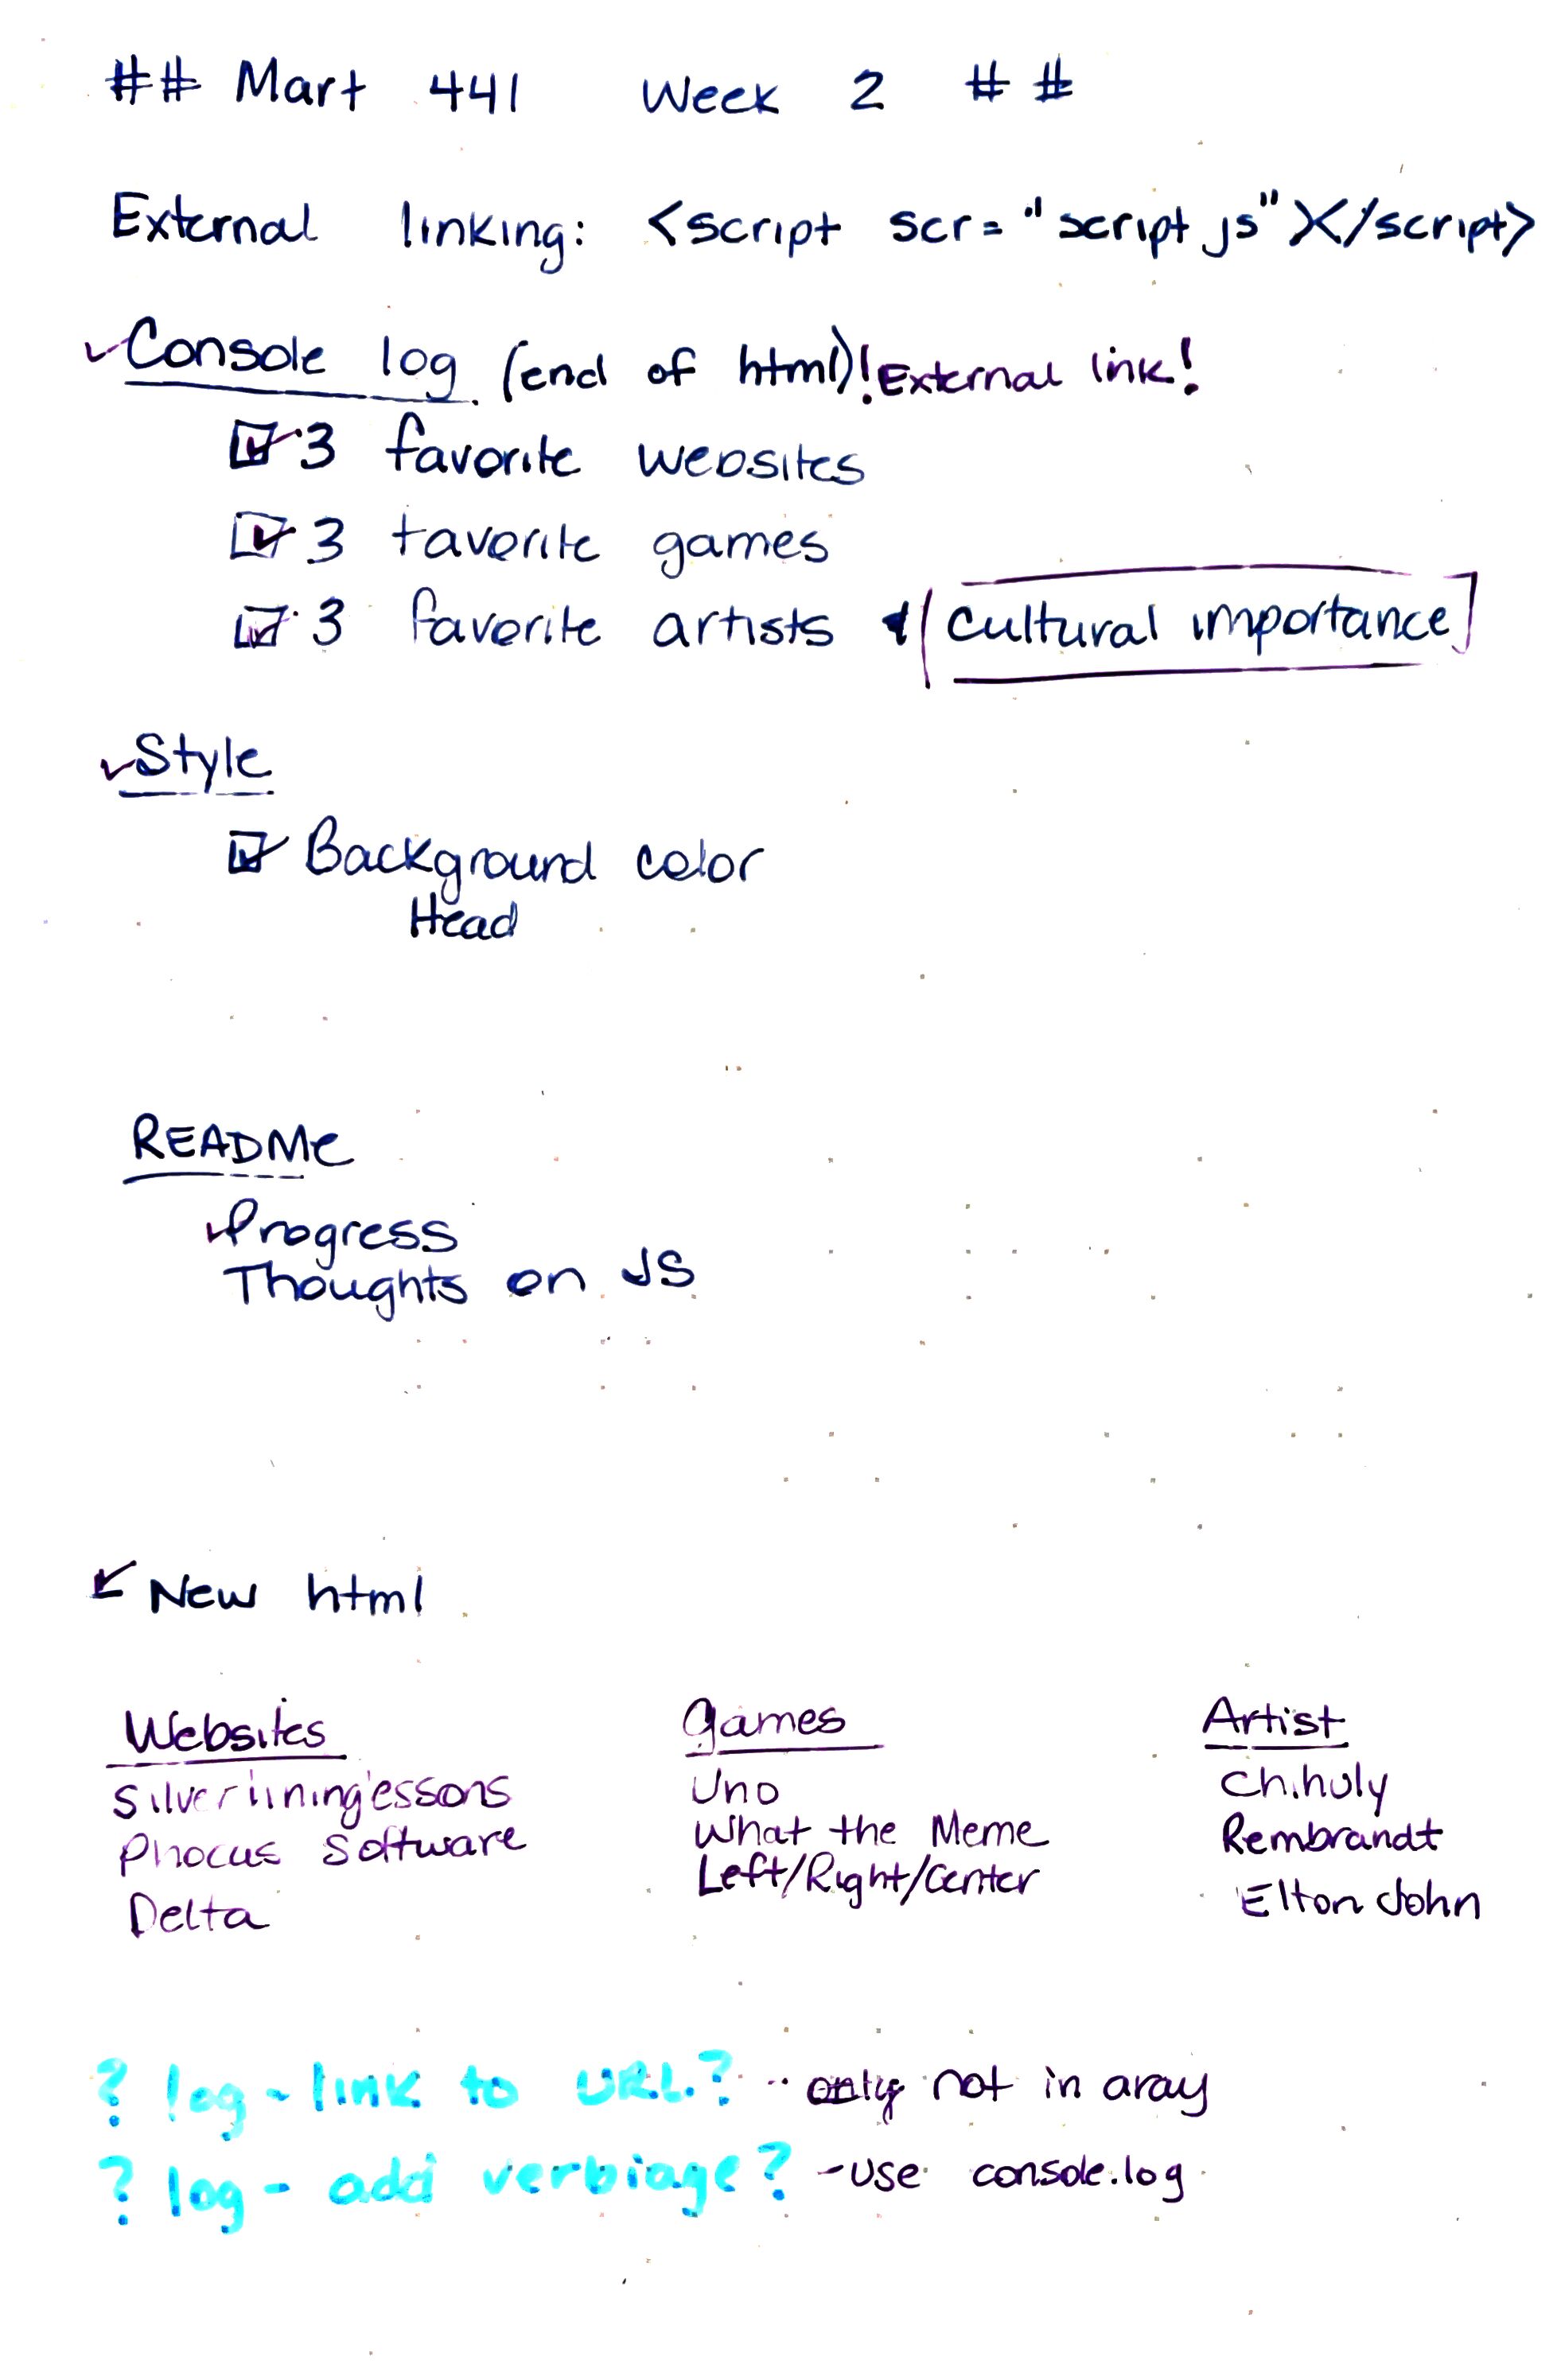 ## Mart 441 Week 2 ##
External linking: <script scr="script js"></script>
✓Console log (end of html)! External link!
☑ 3 favorite websites
☑ 3 favorite games
☑ 3 favorite artists [cultural importance]
✓Style
☑ Background color
Head
README
✓Progress
Thoughts on JS
✓ New html
Websites Games Artist
Silverlininglessons Uno Chihuly
Phocus Software What the Meme Rembrandt
Delta Left/Right/Center Elton John
? log - link to URL? - only not in aray
? log - add verbiage? - use console.log